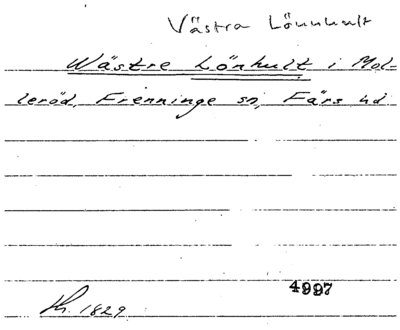 Västra Lönnhult
Wästre Lönhult i Mol-
leröd, Frenninge sn, Färs hd
4997
1829